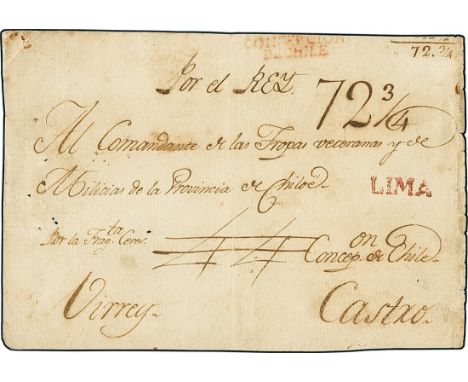 CONCEPCION
DE CHILE
72.¾
Por el REY.
72 ¾
Al Comandante de las Tropas veteranas y de
Milicias de la Provincia de Chiloe
LIMA
Por la Frag.ta Ceres.
44
Concep.on de Chile.
Virrey.
Castro.